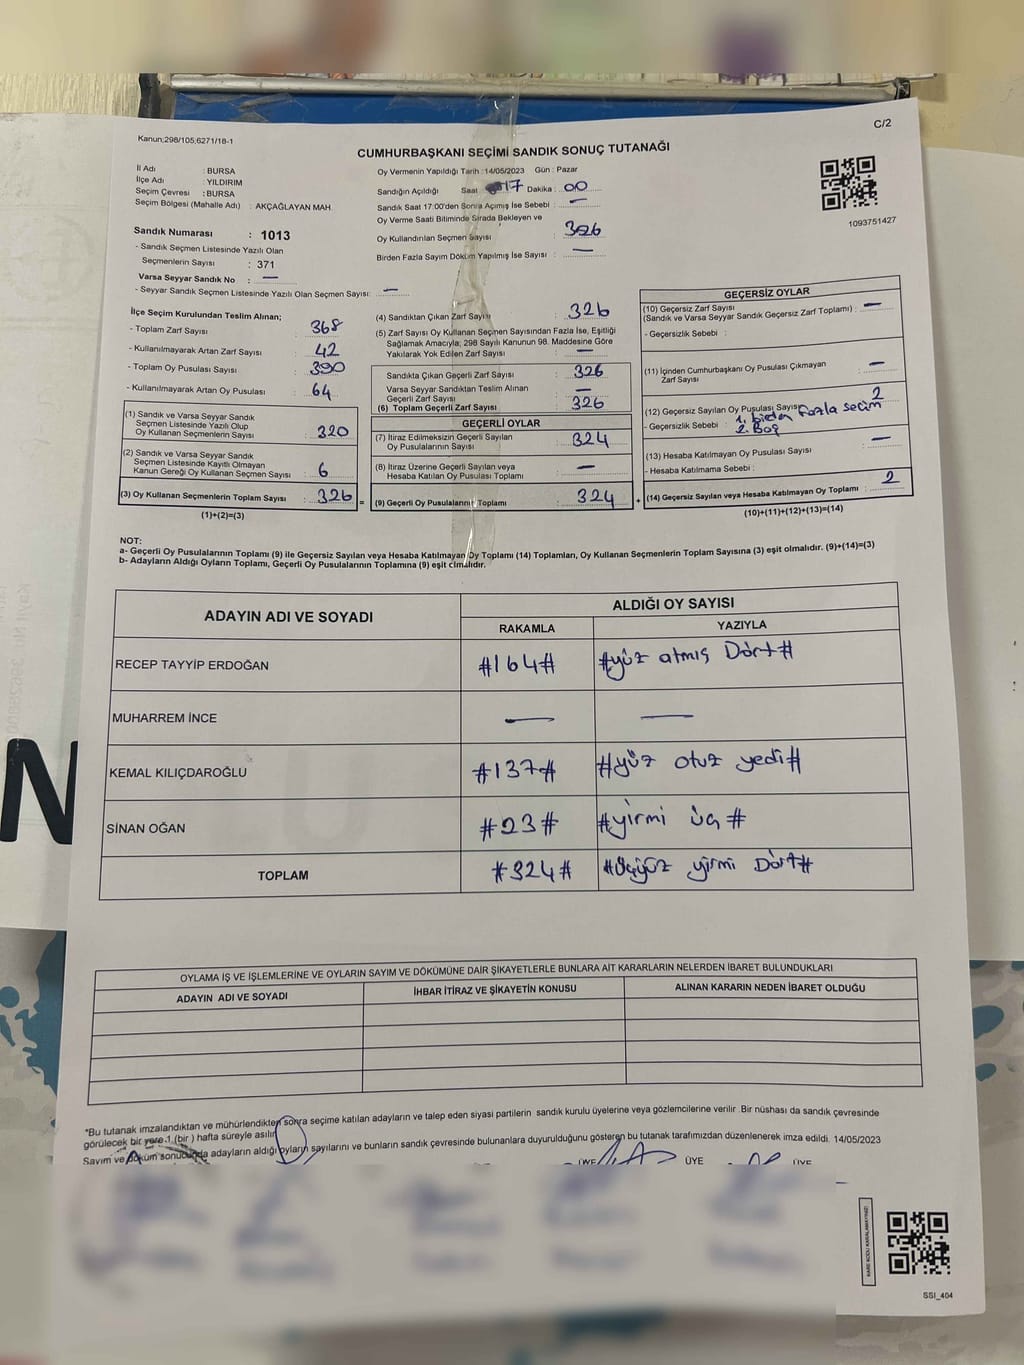 Kanun:298/105;6271/18-1
C/2
CUMHURBAŞKANI SEÇİMİ SANDIK SONUÇ TUTANAĞI
İl Adı : BURSA
İlçe Adı : YILDIRIM
Seçim Çevresi : BURSA
Seçim Bölgesi (Mahalle Adı) : AKÇAĞLAYAN MAH.
Sandık Numarası : 1013
- Sandık Seçmen Listesinde Yazılı Olan
Seçmenlerin Sayısı : 371
Varsa Seyyar Sandık No : —
- Seyyar Sandık Seçmen Listesinde Yazılı Olan Seçmen Sayısı: —
Oy Vermenin Yapıldığı Tarih :14/05/2023 Gün : Pazar
Sandığın Açıldığı Saat : 17 Dakika : 00
Sandık Saat 17:00'den Sonra Açımış İse Sebebi : —
Oy Verme Saati Bitiminde Sırada Bekleyen ve
Oy Kullandırılan Seçmen Sayısı : 326
Birden Fazla Sayım Döküm Yapılmış İse Sayısı : —
1093751427
İlçe Seçim Kurulundan Teslim Alınan;
- Toplam Zarf Sayısı : 368
- Kullanılmayarak Artan Zarf Sayısı : 42
- Toplam Oy Pusulası Sayısı : 390
- Kullanılmayarak Artan Oy Pusulası : 64
(1) Sandık ve Varsa Seyyar Sandık
Seçmen Listesinde Yazılı Olup
Oy Kullanan Seçmenlerin Sayısı : 320
(2) Sandık ve Varsa Seyyar Sandık
Seçmen Listesinde Kayıtlı Olmayan
Kanun Gereği Oy Kullanan Seçmen Sayısı : 6
(3) Oy Kullanan Seçmenlerin Toplam Sayısı : 326 =
(1)+(2)=(3)
(4) Sandıktan Çıkan Zarf Sayısı : 326
(5) Zarf Sayısı Oy Kullanan Seçmen Sayısından Fazla İse, Eşitliği
Sağlamak Amacıyla; 298 Sayılı Kanunun 98. Maddesine Göre
Yakılarak Yok Edilen Zarf Sayısı : —
Sandıkta Çıkan Geçerli Zarf Sayısı : 326
Varsa Seyyar Sandıktan Teslim Alınan
Geçerli Zarf Sayısı : —
(6) Toplam Geçerli Zarf Sayısı : 326
GEÇERLİ OYLAR
(7) İtiraz Edilmeksizin Geçerli Sayılan
Oy Pusulalarının Sayısı : 324
(8) İtiraz Üzerine Geçerli Sayılan veya
Hesaba Katılan Oy Pusulası Toplamı : —
(9) Geçerli Oy Pusulalarının Toplamı : 324 +
GEÇERSİZ OYLAR
(10) Geçersiz Zarf Sayısı
(Sandık ve Varsa Seyyar Sandık Geçersiz Zarf Toplamı) : —
- Geçersizlik Sebebi :
(11) İçinden Cumhurbaşkanı Oy Pusulası Çıkmayan
Zarf Sayısı : —
(12) Geçersiz Sayılan Oy Pusulası Sayısı : 2
- Geçersizlik Sebebi : 1. birden fazla seçim
2. Boş
(13) Hesaba Katılmayan Oy Pusulası Sayısı : —
- Hesaba Katılmama Sebebi :
(14) Geçersiz Sayılan veya Hesaba Katılmayan Oy Toplamı : 2
(10)+(11)+(12)+(13)=(14)
NOT:
a- Geçerli Oy Pusulalarının Toplamı (9) ile Geçersiz Sayılan veya Hesaba Katılmayan Oy Toplamı (14) Toplamları, Oy Kullanan Seçmenlerin Toplam Sayısına (3) eşit olmalıdır. (9)+(14)=(3)
b- Adayların Aldığı Oyların Toplamı, Geçerli Oy Pusulalarının Toplamına (9) eşit olmalıdır.
ADAYIN ADI VE SOYADI ALDIĞI OY SAYISI
RAKAMLA YAZIYLA
RECEP TAYYİP ERDOĞAN #164# #yüz atmış Dört#
MUHARREM İNCE — —
KEMAL KILIÇDAROĞLU #137# #yüz otuz yedi#
SİNAN OĞAN #23# #yirmi üç#
TOPLAM #324# #üçyüz yirmi Dört#
OYLAMA İŞ VE İŞLEMLERİNE VE OYLARIN SAYIM VE DÖKÜMÜNE DAİR ŞİKAYETLERLE BUNLARA AİT KARARLARIN NELERDEN İBARET BULUNDUKLARI
ADAYIN ADI VE SOYADI İHBAR İTİRAZ VE ŞİKAYETİN KONUSU ALINAN KARARIN NEDEN İBARET OLDUĞU
*Bu tutanak imzalandıktan ve mühürlendikten sonra seçime katılan adayların ve talep eden siyasi partilerin sandık kurulu üyelerine veya gözlemcilerine verilir .Bir nüshası da sandık çevresinde
görülecek bir yere 1 (bir ) hafta süreyle asılır.
Sayım ve döküm sonucunda adayların aldığı oyların sayılarını ve bunların sandık çevresinde bulunanlara duyurulduğunu gösteren bu tutanak tarafımızdan düzenlenerek imza edildi. 14/05/2023
ÜYE ÜYE ÜYE
SSI_404